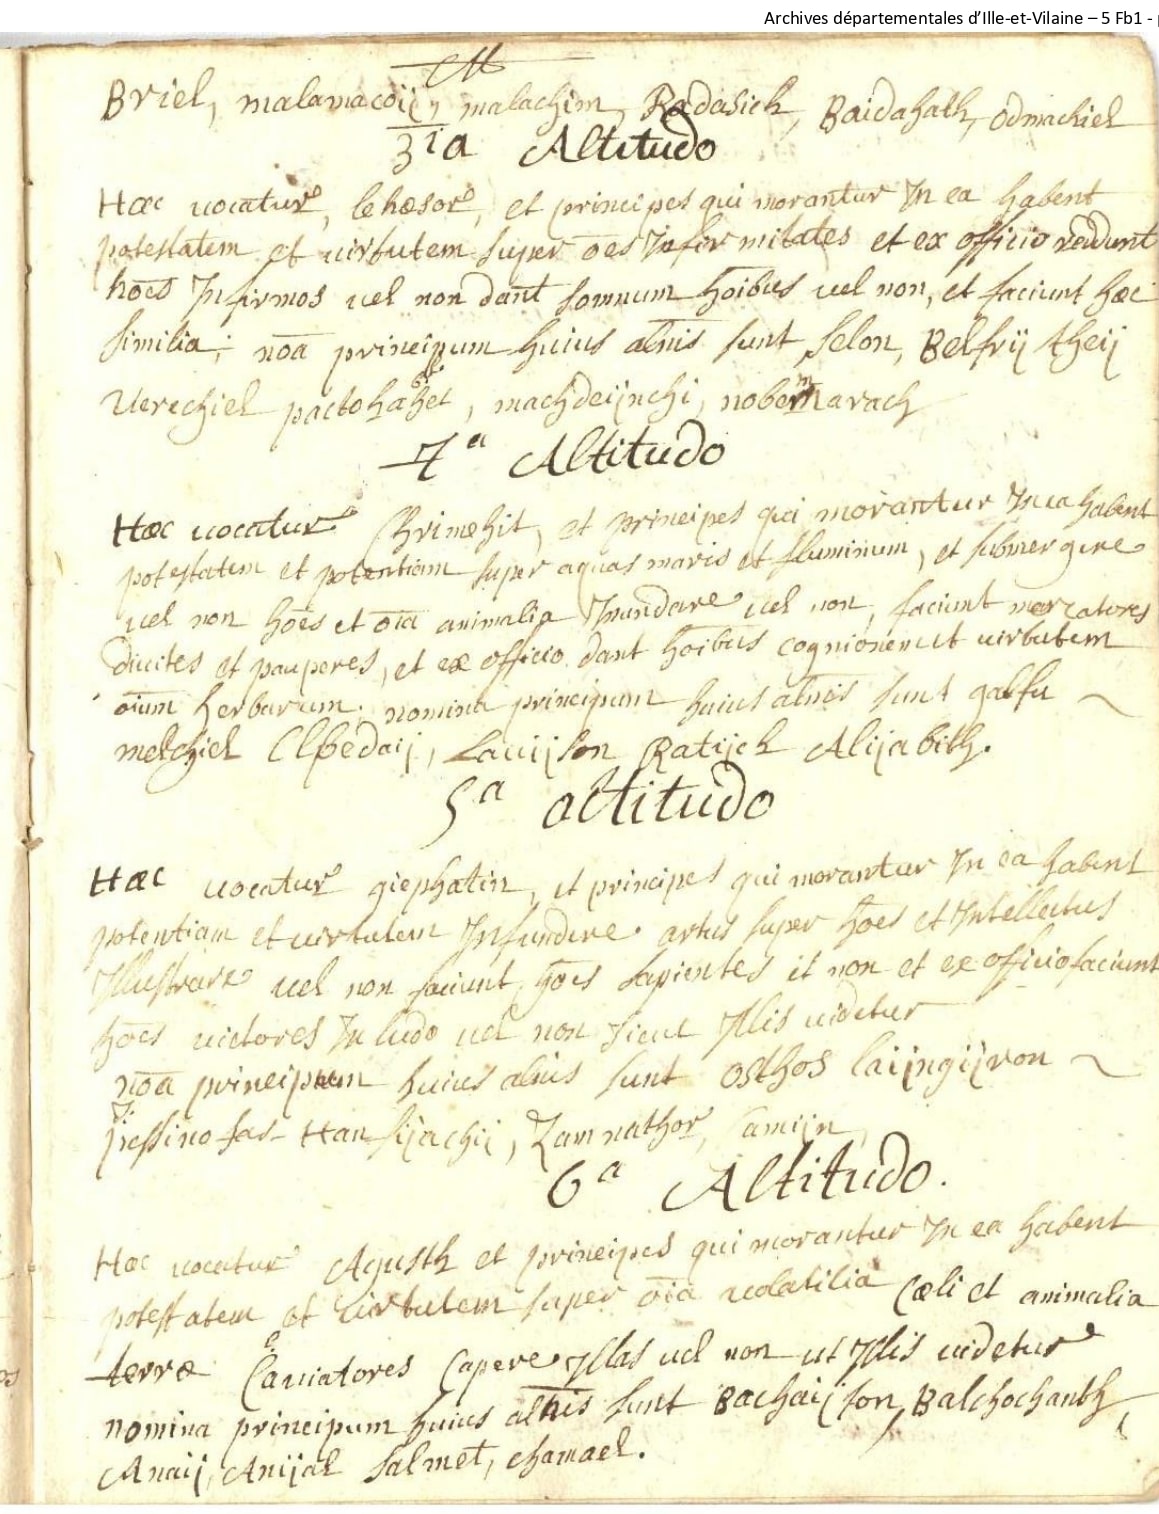 Archives départementales d'Ille-et-Vilaine – 5 Fb1 -
Briel, malamacoij, malachim, Radasich, Baidahath, odmachiel
3ia Altitudo
Hæc uocatur, lehæsor, et principes qui morantur In ea habent
potestatem et uirtutem super oēs Infirmitates et ex officio reddunt
hoēs Infirmos uel non dant somnum hoībus uel non, et faciunt hæc
similia; noā principum huius altnis sunt, selon, Belfrij theij
Uerechiel pactohahet, machdeijnchi, nobemarach
4a Altitudo
Hæc uocatur Chrimehit, et principes qui morantur In ea habent
potestatem et potentiam super aquas maris et fluminum, et submergere
uel non hoēs et oīa animalia Inundare uel non, faciunt mercatores
diuites et pauperes, et ex officio dant hoībus cognionem et uirtutem
oīum herbarum. nomina principum huius altnis sunt galfu
melchiel Elpedaij, Lauijson Ratijch Alijabith.
5a altitudo
Hæc uocatur giephatin, et principes qui morantur In ea habent
potentiam et uirtutem Infundere artus super hoēs et Intellectus
Illustrare uel non faciunt hoēs sapientes et non et ex officio faciunt
hoēs uictores In ludo uel non sicut Illis uidetur
noā principum huius altnis sunt osthos laijngijron
jressinofas- Hanssijachij, Zamnathor, Camijn,
6a Altitudo.
Hæc uocatur Agusth et principes qui morantur In ea habent
potestatem et uirtutem super oīa uolatilia Cœli et animalia
terræ Cauiatores Capere Illas uel non ut Illis uidetur
nomina principum huius altnis sunt Bachaijson, Balchochanth,
Anaij, Anijal Salmet, chamael.